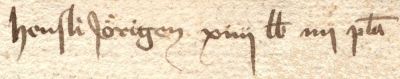 hensli Jörigen xiiii lb iiii pla